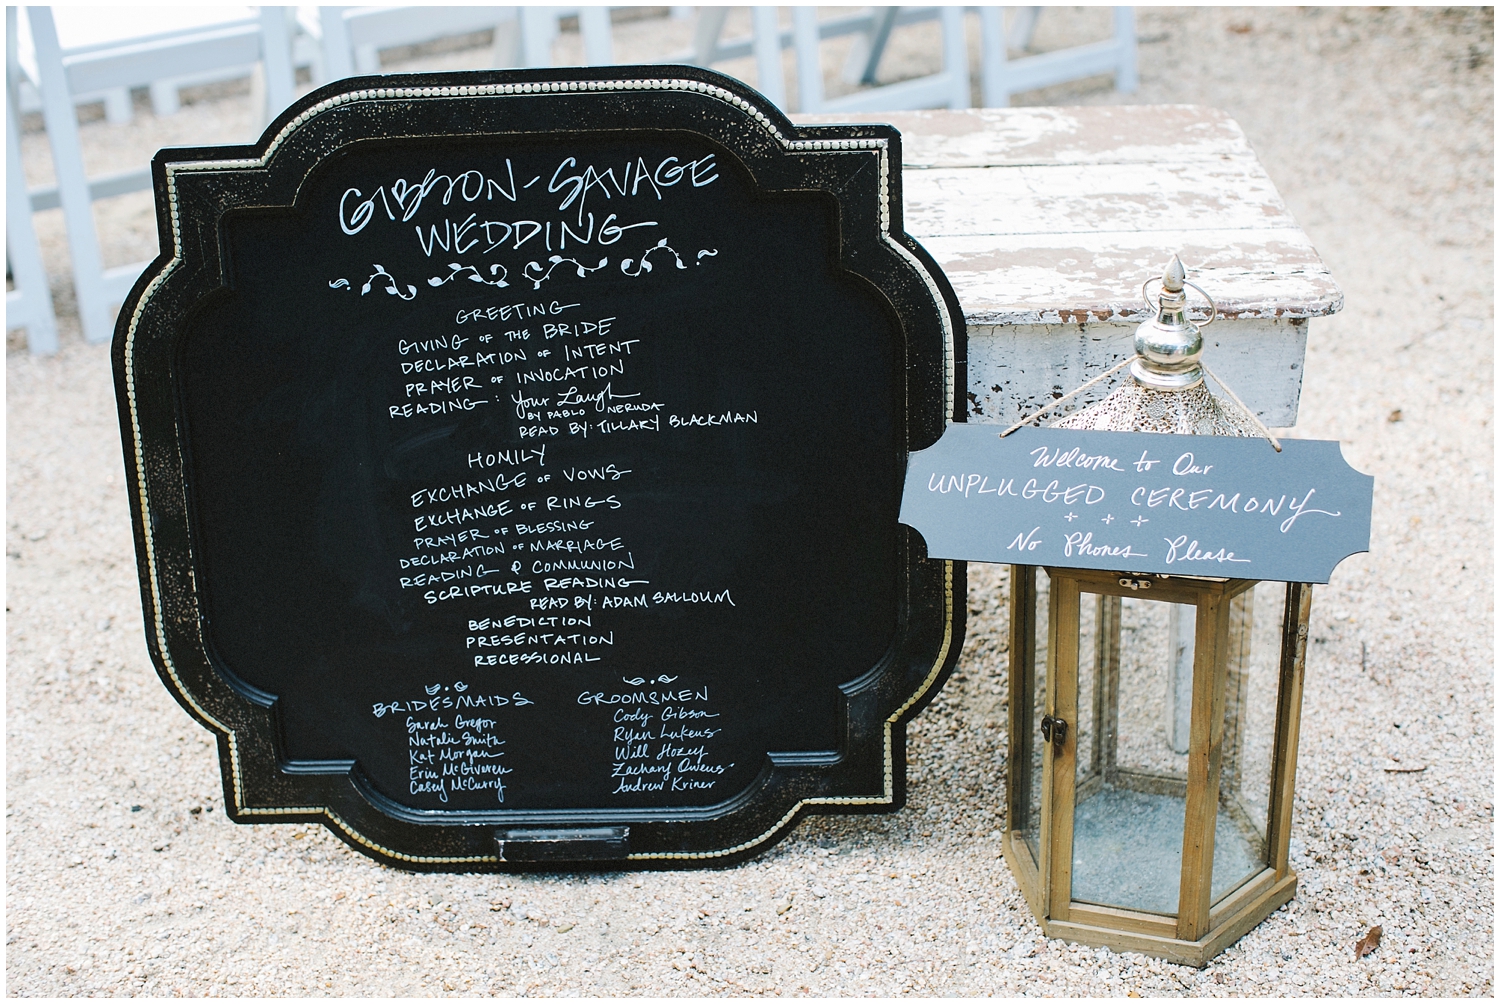 GIBSON-SAVAGE
WEDDING
GREETING
GIVING OF THE BRIDE
DECLARATION OF INTENT
PRAYER OF INVOCATION
READING: Your Laugh
BY PABLO NERUDA
READ BY: TILLARY BLACKMAN
HOMILY
EXCHANGE OF VOWS
EXCHANGE OF RINGS
PRAYER OF BLESSING
DECLARATION OF MARRIAGE
READING & COMMUNION
SCRIPTURE READING
READ BY: ADAM SALLOUM
BENEDICTION
PRESENTATION
RECESSIONAL
BRIDESMAIDS
Sarah Gregor
Natalie Smith
Kat Morgan
Erin McGiveren
Casey McCurry
GROOMSMEN
Cody Gibson
Ryan Lukens
Will Hozey
Zachary Owens
Andrew Kriner
Welcome to Our
UNPLUGGED CEREMONY
No Phones Please